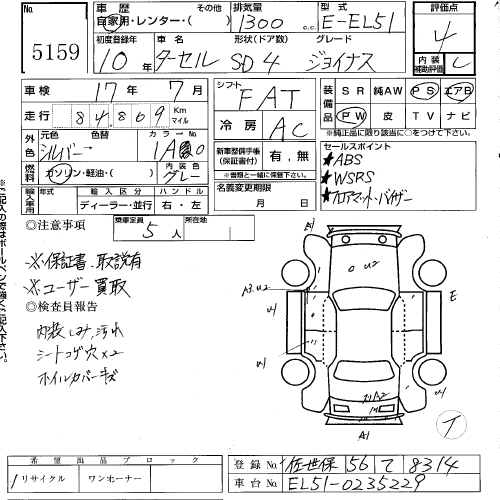 5159
車歴 自家用・レンター・( ) その他
排気量 1300 c.c.
型式 E-EL51
評価点 4
初度登録年 10年
車名 ターセル
形状(ドア数) SD4
グレード ジョイナス
内装補助評価 C
車検 17年 7月
走行 84,809 Km マイル
外色 元色 シルバー 色替 カラーNo 1A0
燃料 ガソリン・軽油・( ) 内装色 グレー
輸入車用 輸入区分 ディーラー・並行 ハンドル 右・左
シフト FAT
冷房 AC
新車整備手帳(保証書付) 有・無
※書類と一緒に保管下さい。
名義変更期限 月 日
装備品 SR 純AW PS エアB
PW 皮 TV ナビ
※純正品に限り該当に○をつけて下さい。
セールスポイント
★ABS
★WSRS
★フロアマット・バイザー
◎注意事項
乗車定員 5人
所在地
※保証書、取説有
※ユーザー買取
◎検査員報告
内装しみ、汚れ
シートコゲ穴×2
ホイルカバーキズ
※ご記入の際はボールペンで強くご記入下さい。
A1
U2
A3.U2
U1
E
U1
U1
U1
A2
A1
希望出品ブロック
リサイクル ワンオーナー
登録No. 佐世保 56 て 8314
車台No. EL51-0235229